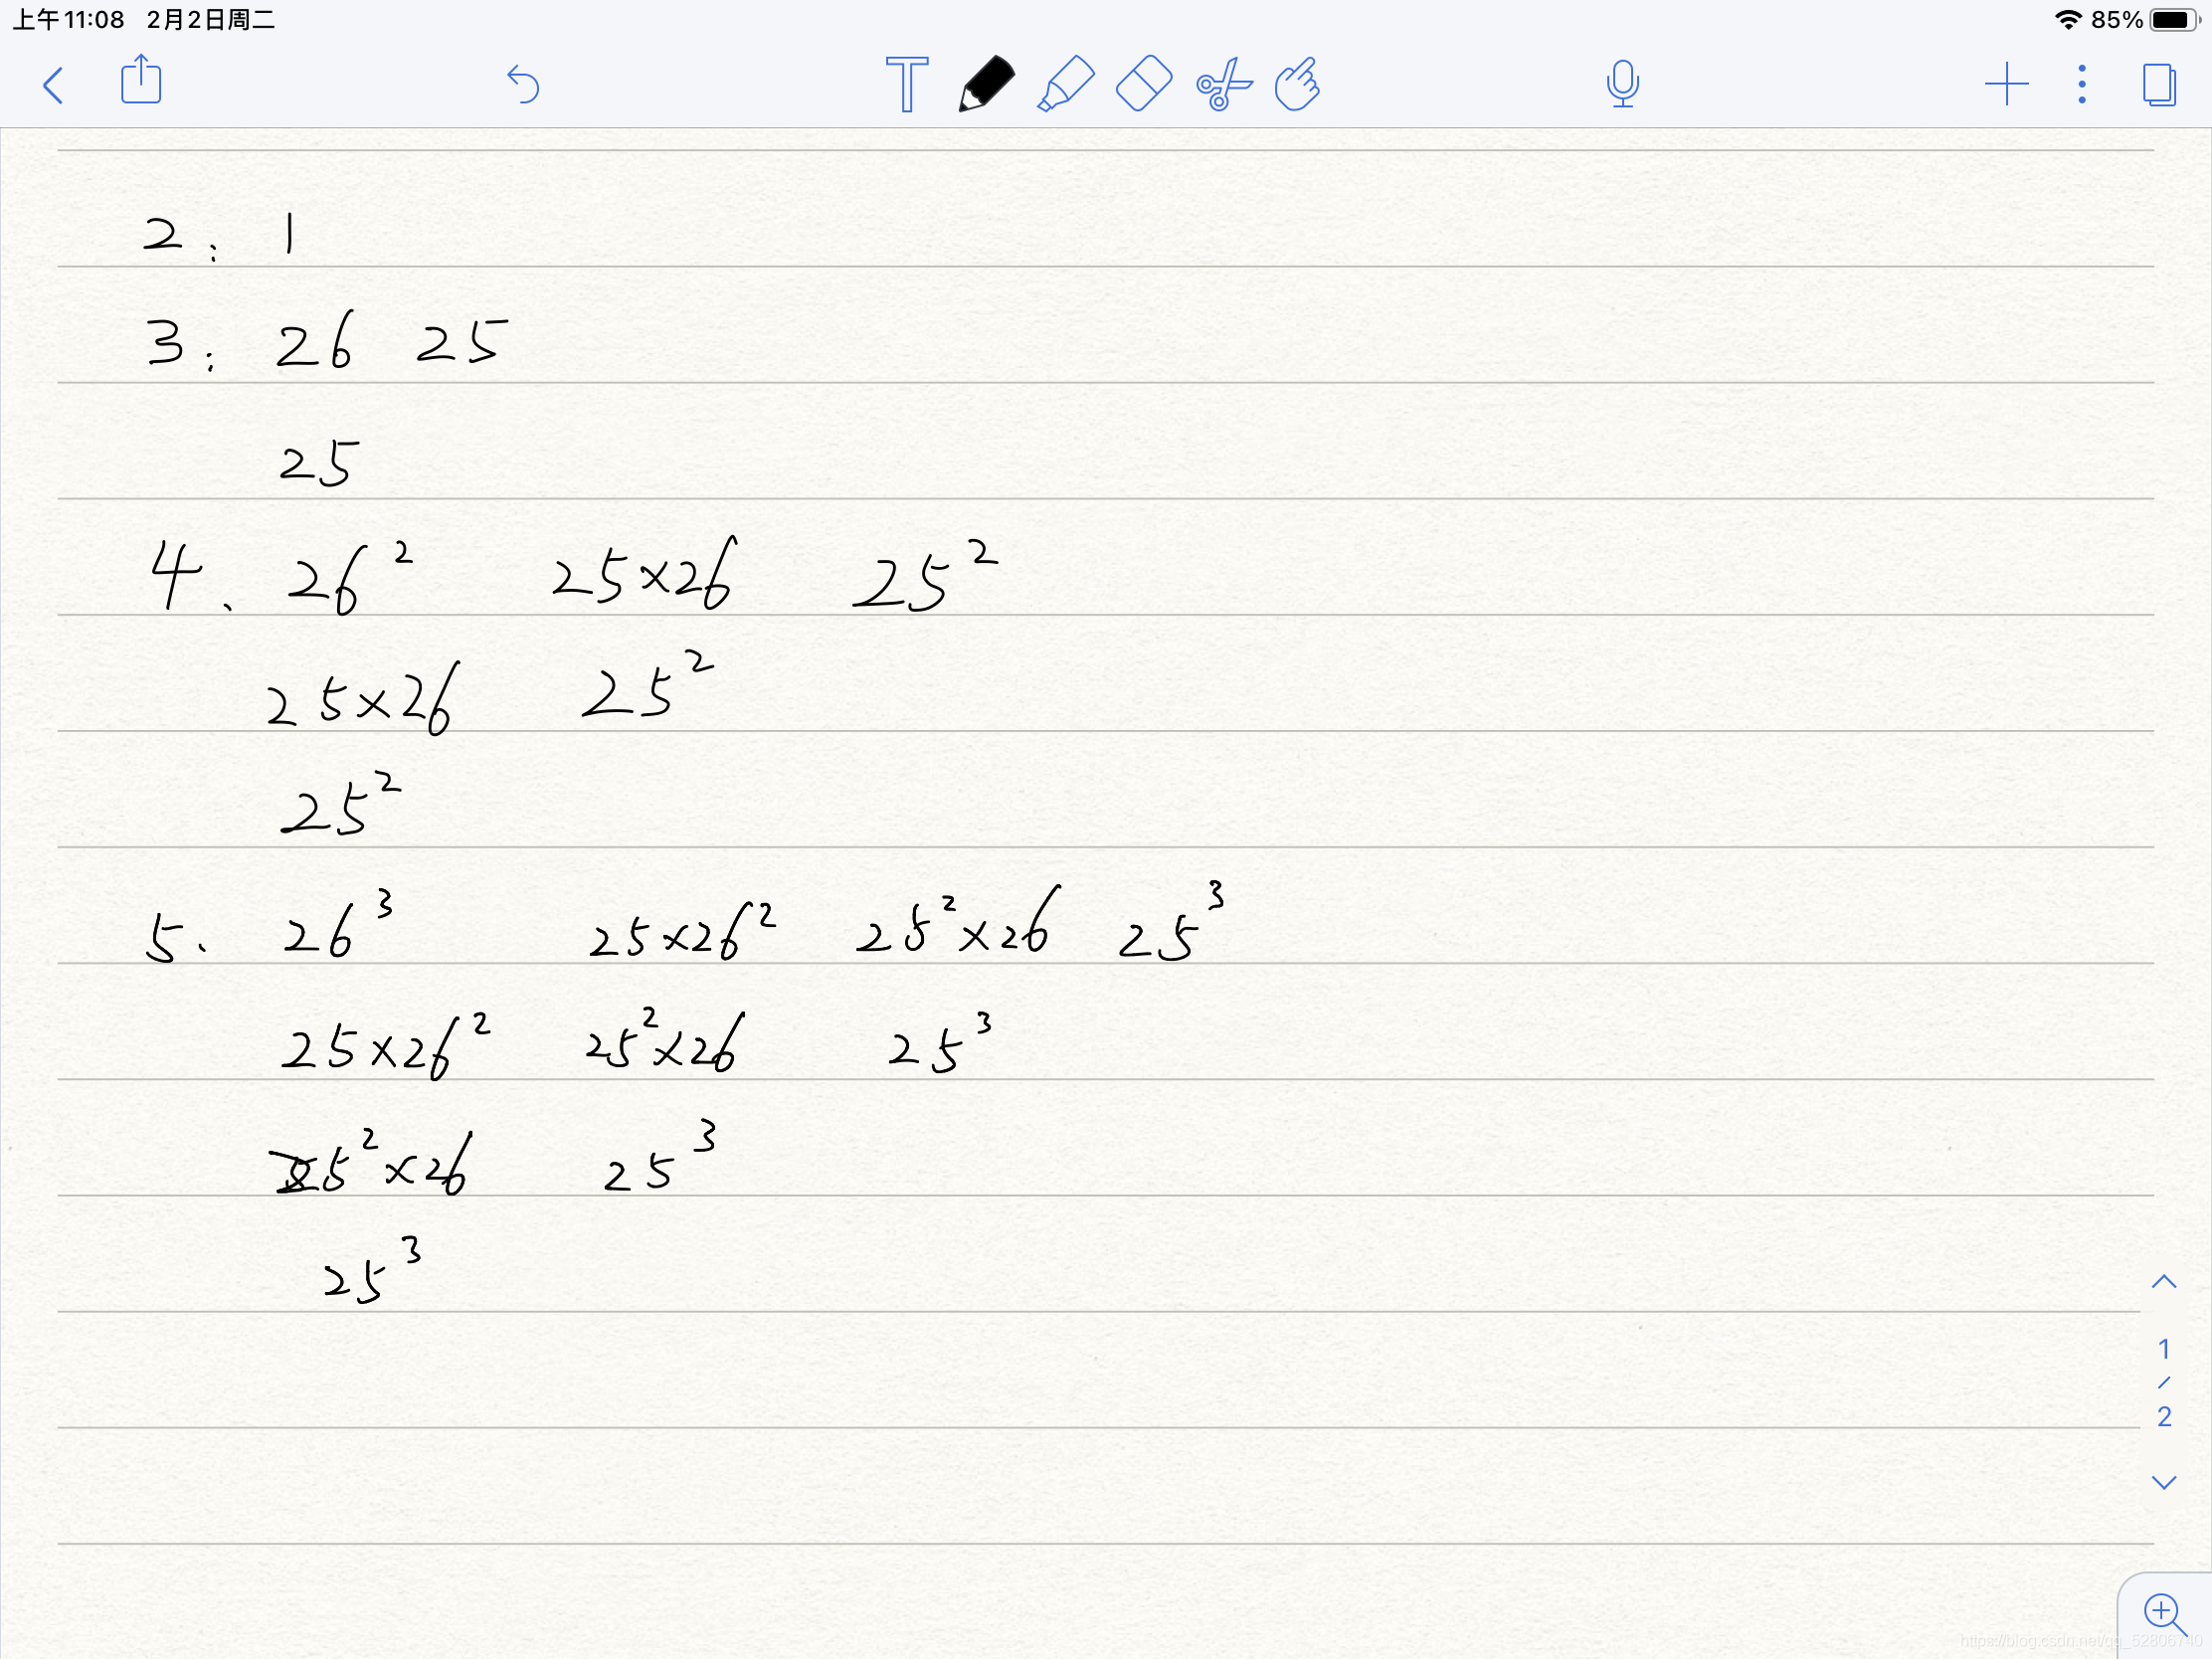 上午11:08 2月2日周二 85%
2: 1
3: 26 25
25
4、 26² 25×26 25²
25×26 25²
25²
5. 26³ 25×26² 25²×26 25³
25×26² 25²×26 25³
25²×26 25³
25³
1
/
2
https://blog.csdn.net/qq_52806740